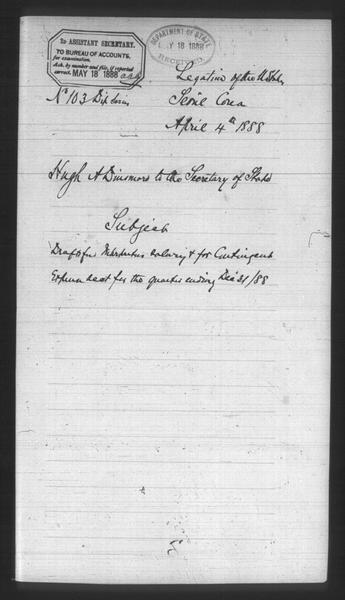 2D ASSISTANT SECRETARY.
TO BUREAU OF ACCOUNTS,
for examination.
Ack. by number and file, if reported
correct. MAY 18 1888
DEPARTMENT OF STATE
MAY 18 1888
RECEIVED
Legation of the U States
No 103 Dip Series
Seoul Corea
April 4th 1888
Hugh A Dinsmore to the Secretary of State
Subject
Drafts for salary & for Contingent
Expense acct for the quarter ending Dec 31/88